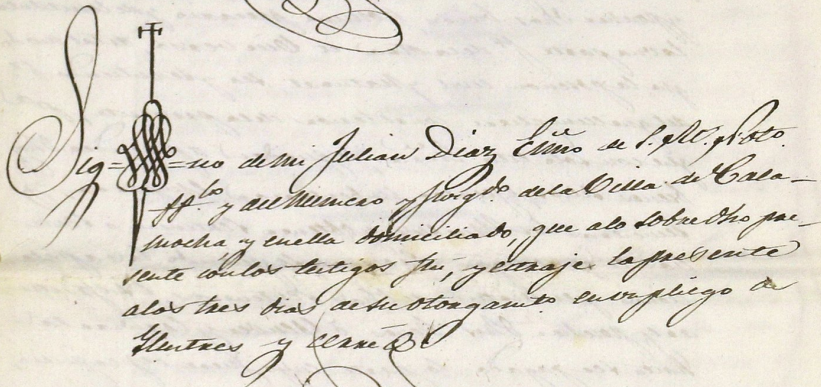 Sig=no de mi Julian Diaz Esno de S. M. pco. Noto.
y del Numero y Juzgdo. de la Villa de Cala-
mocha y en ella domiciliado, que a lo sobredho pre-
sente con los testigos fui, y extraje la presente
a los tres dias de su otorgamto en un pliego de
Ilustres y cerré